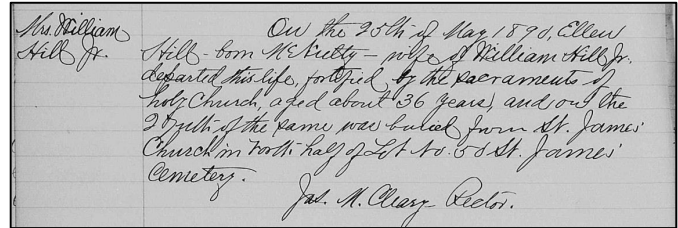 Mrs. William
Hill Jr.
On the 25th of May 1890, Ellen
Hill - born McNulty - wife of William Hill Jr.
departed this life, fortified by the sacraments of
holy Church, aged about 36 years, and on the
of the same was buried from St. James'
Church in north half of Lot No. 50 St. James'
Cemetery.
Jas. M. Cleary - Rector.